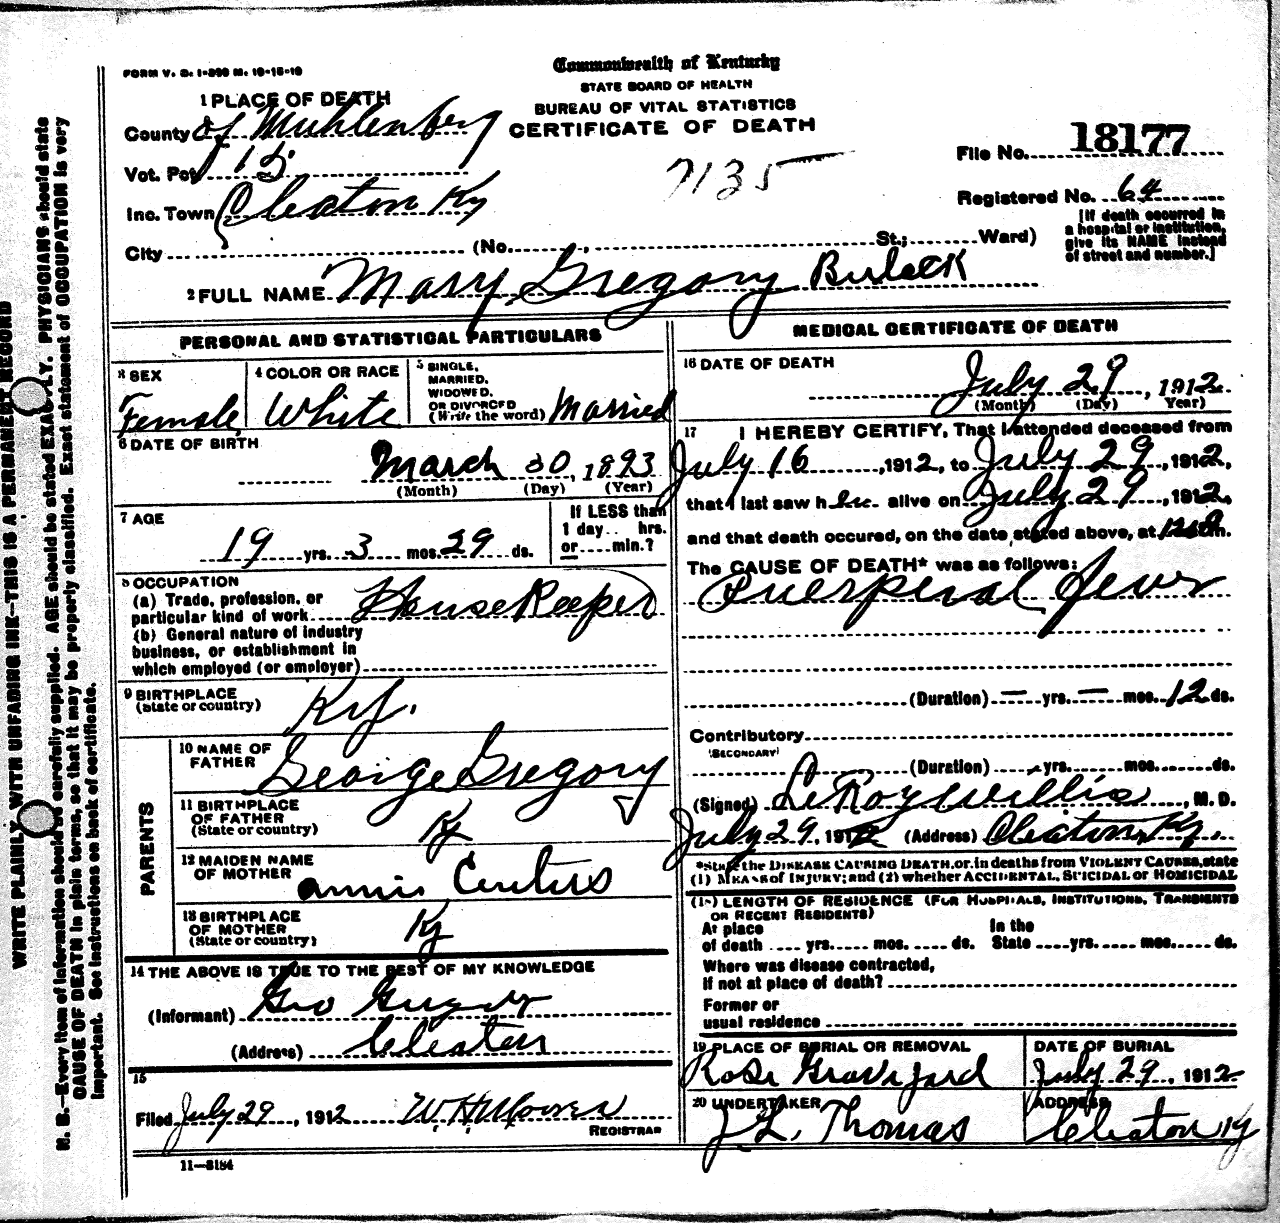 FORM V. S. 1-200 M. 10-15-10
Commonwealth of Kentucky
STATE BOARD OF HEALTH
BUREAU OF VITAL STATISTICS
CERTIFICATE OF DEATH
1 PLACE OF DEATH
County of Muhlenberg
Vot. Pct 15
Inc. Town Cleaton Ky
City (No. St.; Ward)
7135
File No. 18177
Registered No. 64
[If death occurred in
a hospital or institution,
give its NAME instead
of street and number.]
2 FULL NAME Mary Gregory Bulock
PERSONAL AND STATISTICAL PARTICULARS
3 SEX
Female
4 COLOR OR RACE
White
5 SINGLE,
MARRIED,
WIDOWED,
OR DIVORCED
(Write the word) Married
6 DATE OF BIRTH
March 30, 1893
(Month) (Day) (Year)
7 AGE
19 yrs. 3 mos. 29 ds.
If LESS than
1 day .. hrs.
or .... min.?
8 OCCUPATION
(a) Trade, profession, or
particular kind of work House Keeper
(b) General nature of industry
business, or establishment in
which employed (or employer)
9 BIRTHPLACE
(State or country) Ky.
PARENTS
10 NAME OF
FATHER George Gregory
11 BIRTHPLACE
OF FATHER
(State or country) Ky
12 MAIDEN NAME
OF MOTHER Annie Centers
13 BIRTHPLACE
OF MOTHER
(State or country) Ky
14 THE ABOVE IS TRUE TO THE BEST OF MY KNOWLEDGE
(Informant) Geo Gregory
(Address) Cleaton
15
Filed July 29, 1912 W. H. Moores
REGISTRAR
11-3184
MEDICAL CERTIFICATE OF DEATH
16 DATE OF DEATH
July 29, 1912
(Month) (Day) Year)
17 I HEREBY CERTIFY, That I attended deceased from
July 16, 1912, to July 29, 1912,
that I last saw her alive on July 29, 1912,
and that death occured, on the date stated above, at m.
The CAUSE OF DEATH* was as follows:
Puerperal Fever
(Duration) — yrs. — mos. 12 ds.
Contributory
(SECONDARY)
(Duration) yrs. mos. ds.
(Signed) LeRoy Willis, M. D.
July 29, 1912 (Address) Cleaton, Ky.
*State the DISEASE CAUSING DEATH, or, in deaths from VIOLENT CAUSES, state
(1) MEANS of INJURY; and (2) whether ACCIDENTAL, SUICIDAL or HOMICIDAL
(18) LENGTH OF RESIDENCE (FOR HOSPITALS, INSTITUTIONS, TRANSIENTS
OR RECENT RESIDENTS)
At place In the
of death .... yrs. mos. ds. State yrs. mos. ds.
Where was disease contracted,
if not at place of death?
Former or
usual residence
19 PLACE OF BURIAL OR REMOVAL
Rose Graveyard
DATE OF BURIAL
July 29, 1912
20 UNDERTAKER
J. L. Thomas
ADDRESS
Cleaton Ky
WRITE PLAINLY, WITH UNFADING INK—THIS IS A PERMANENT RECORD
N. B.—Every item of information should be carefully supplied. AGE should be stated EXACTLY. PHYSICIANS should state
CAUSE OF DEATH in plain terms, so that it may be properly classified. Exact statement of OCCUPATION is very
important. See instructions on back of certificate.